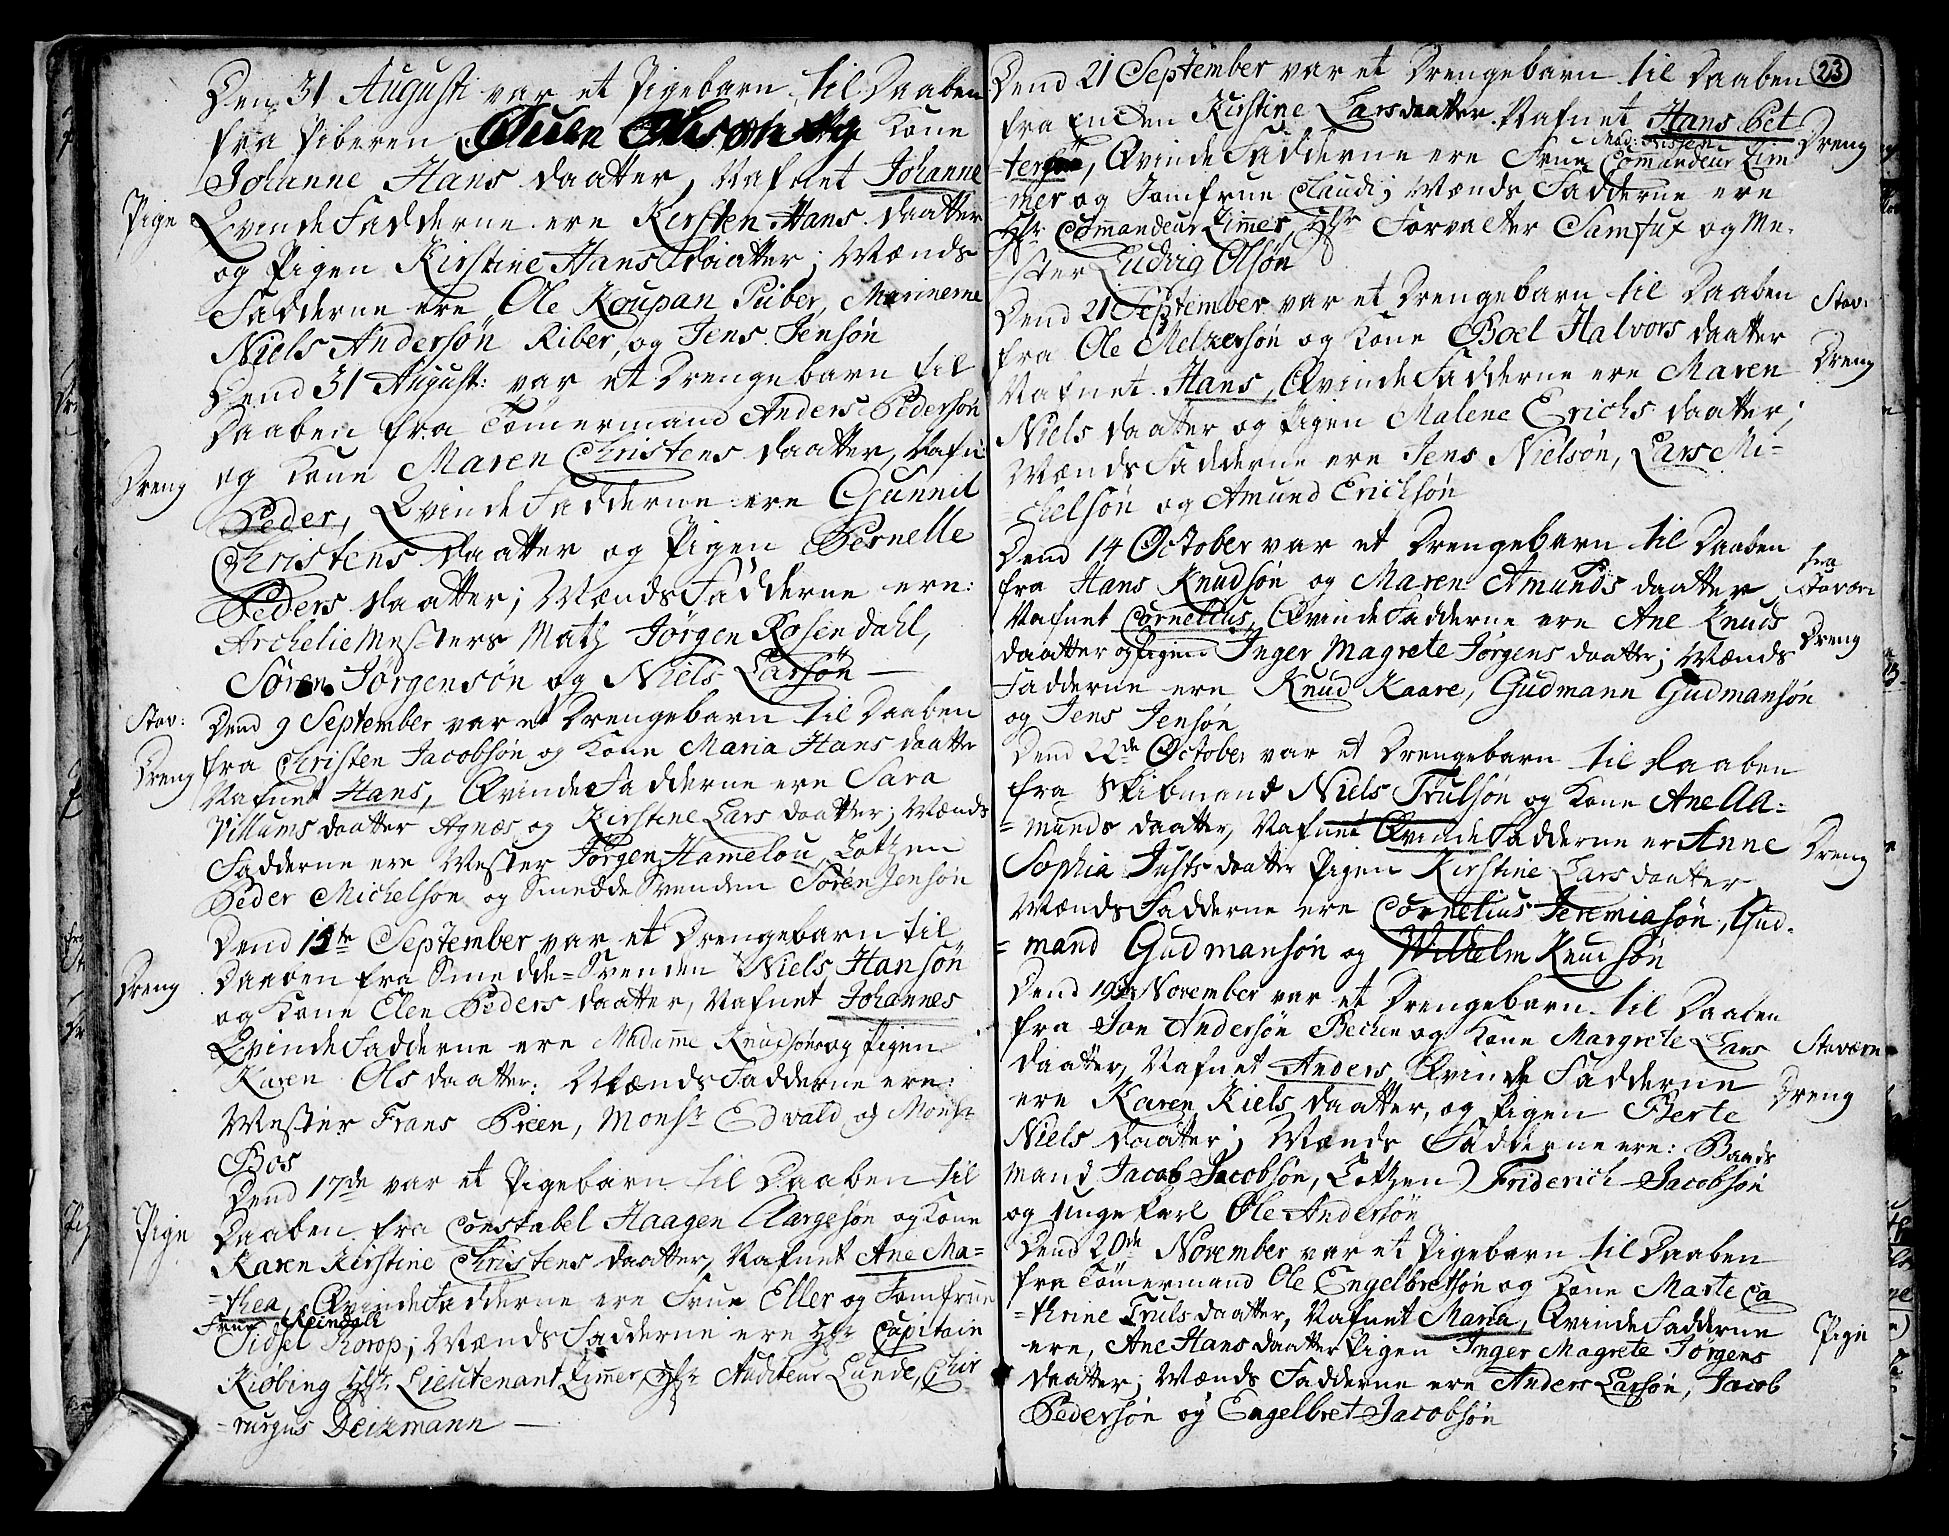 Den 31 August var et Pigebarn til Daaben
fra Piberen Suen Olsøn og Kone
Johanne Hans daatter, Nafnet Johanne
Pige
QvindeFadderne ere Kirsten Hans daatter
og Pigen Kirstine Hans daatter; Mænds
Fadderne ere Ole Koupan Piiber, Marinerne
Niels Andersøn Riber, og Jens Jensøn
Dend 31 August: var et Drengebarn til
Daaben fra Tømermand Anders Pedersøn
og Kone Maren Christens daatter, Nafn:
Dreng
Peder, QvindeFadderne ere Gunnil
Christens daatter og Pigen Pernelle
Peders daatter; MændsFadderne ere:
Archeliemesters Math Jørgen Rosendahl,
Søren Jørgensøn og Niels Larsøn
Stav:
Dend 9 September var et Drengebarn til Daaben
Dreng
fra Christen Jacobsøn og Kone Maria Hans daatter
Nafnet Hans, QvindeFadderne ere Sara
Villums daatter Agnæs og Kirstine Lars daatter; Mænds
Fadderne ere Mester Jørgen Hamelou, Lotzen
Peder Michelsøn og Smedde Svenden Søren Jensøn
Dend 15te September var et Drengebarn til
Daaben fra Smedde=Svenden Niels Hansøn
Dreng
og Kone Elen Peders daatter, Nafnet Johannes
QvindeFadderne ere Madame Knudsøn og Pigen
Karen Ols daatter: MændsFadderne ere:
Mester Frans Preen, Monsr Edvald og Monsr
Bos
Dend 17de var et Pigebarn til Daaben til
Pige
Daaben fra Constabel Haagen Aargesøn og Kone
Karen Kirstine Christens daatter, Nafnet Ane Ma=
=thea, QvindeFadderne ere Frue Eller og Jomfrue
Frue Reindall
Sidsel Korop; MændsFadderne ere Hr Capitain
Kiøbing Hr Lieutenant Zimmer, Hr Auditeur Lunde, Chir
=rurgus Deizmann
23
Dend 21 September var et Drengebarn til Daaben
fra Enchen Kirstine Larsdaatter Nafnet Hans Pet
Dreng
Mad: Nissen
=tersøn, QvindeFadderne ere Frue Comandeur Zim
=mer og Jomfrue Claudi; Mænds Fadderne ere
Hr Commandeur Zimmer, Hr Forvalter Samfux og Me=
=ster Ludvig Olsøn
Dend 21 September var et Drengebarn til Daaben
Stav:
fra Ole Melkersøn og Kone Boel Halvors daatter
Dreng
Nafnet Hans, QvindeFadderne ere Maren
Niels daatter og Pigen Malene Erichs daatter;
MændsFadderne ere Jens Nielsøn, Lars Mi=
=chelsøn og Amund Erichsøn
Dend 14 October var et Drengebarn til Daaben
fra
fra Hans Knudsøn og Maren Amunds daatter
Stavern
Nafnet Cornelius, QvindeFadderne ere Ane Knuds
Dreng
daatter og Pigen Inger Magrete Jørgens daatter; Mænds
Fadderne ere Knud Kaare, Gudmann Gudmansøn
og Jens Jensøn
Dend 22de October var et Drengebarn til Daaben
fra Skibmand Niels Trulsøn og Kone Ane Aa=
=munds daatter, Nafnet QvindeFadderne er Anne
Dreng
Sophia Justs daatter Pigen Kirstine Lars daatter
MændsFadderne ere Cornelius Jeremiasøn, Gud=
=mand Gudmansøn og Wilhelm Knudsøn
Dend 19de November var et Drengebarn til Daaben
fra Jon Andersøn Bechen og Kone Margrete Lars
Stavern
daatter, Nafnet Anders QvindeFadderne
Dreng
ere Karen Kiels daatter, og Pigen Berte
Niels daatter; Mænds Fadderne ere: Baads
mand Jacob Jacobsøn, Lotzen Friderich Jacobsøn
og Unge karl Ole Andersøn
Dend 20de November var et Pigebarn til Daaben
fra Tømermand Ole Engelbretsøn og Kone Marte Ca
=thrine Truls daatter, Nafnet Maria, QvindeFadderne
Pige
ere, Ane Hans daatter Pigen Inger Magrete Jørgens
daatter; Mænds Fadderne ere Anders Larsøn, Jacob
Pedersøn og Engelbret Jacobsøn